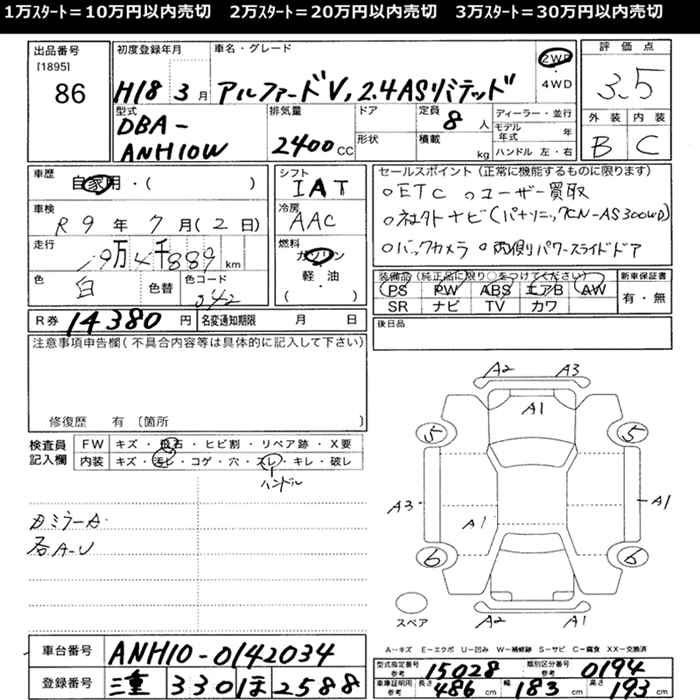 1万ｽﾀｰﾄ＝10万円以内売切　2万ｽﾀｰﾄ＝20万円以内売切　3万ｽﾀｰﾄ＝30万円以内売切
出品番号 [1895] 86
初度登録年月 H18 3月
車名・グレード アルファードV, 2.4ASリミテッド
2WD・4WD
評価点 3.5
型式 DBA-ANH10W
排気量 2400CC
ドア
形状
定員 8人
積載 kg
ディーラー・並行
モデル年式 年
ハンドル 左・右
外装 B
内装 C
車歴 自家用・( )
シフト IAT
セールスポイント(正常に機能するものに限ります)
○ETC ○ユーザー買取
○社外ナビ(パナソニック CN-AS300WD)
○バックカメラ ○両側パワースライドドア
車検 R9年7月(2日)
冷房 AAC
走行 19万4千889km
燃料 ガソリン・軽・油( )
色 白 色替
色コード 042
装備品(純正品に限り○をつけてください)
PS PW ABS エアB AW
SR ナビ TV カワ
新車保証書 有・無
R券 14380円
名変通知期限 月 日
後日品
注意事項申告欄(不具合内容等は具体的に記入して下さい)
修復歴 有〔箇所 〕
検査員記入欄
FW キズ・飛石・ヒビ割・リペア跡・X要
内装 キズ・汚レ・コゲ・穴・スレ・キレ・破レ
ハンドル
ミラーA
各A-U
A2 A3
A1
5 5
A3 A1 A1
6 6
A2 A1
スペア
A－キズ E－エクボ U－凹み W－補修跡 S－サビ C－腐食 XX－交換済
車台番号 ANH10-0142034
登録番号 三重 330 ほ 2588
型式指定番号 参考 15028
類別区分番号 参考 0194
車庫証明用 参考 長さ 486cm 幅 183cm 高さ 193cm